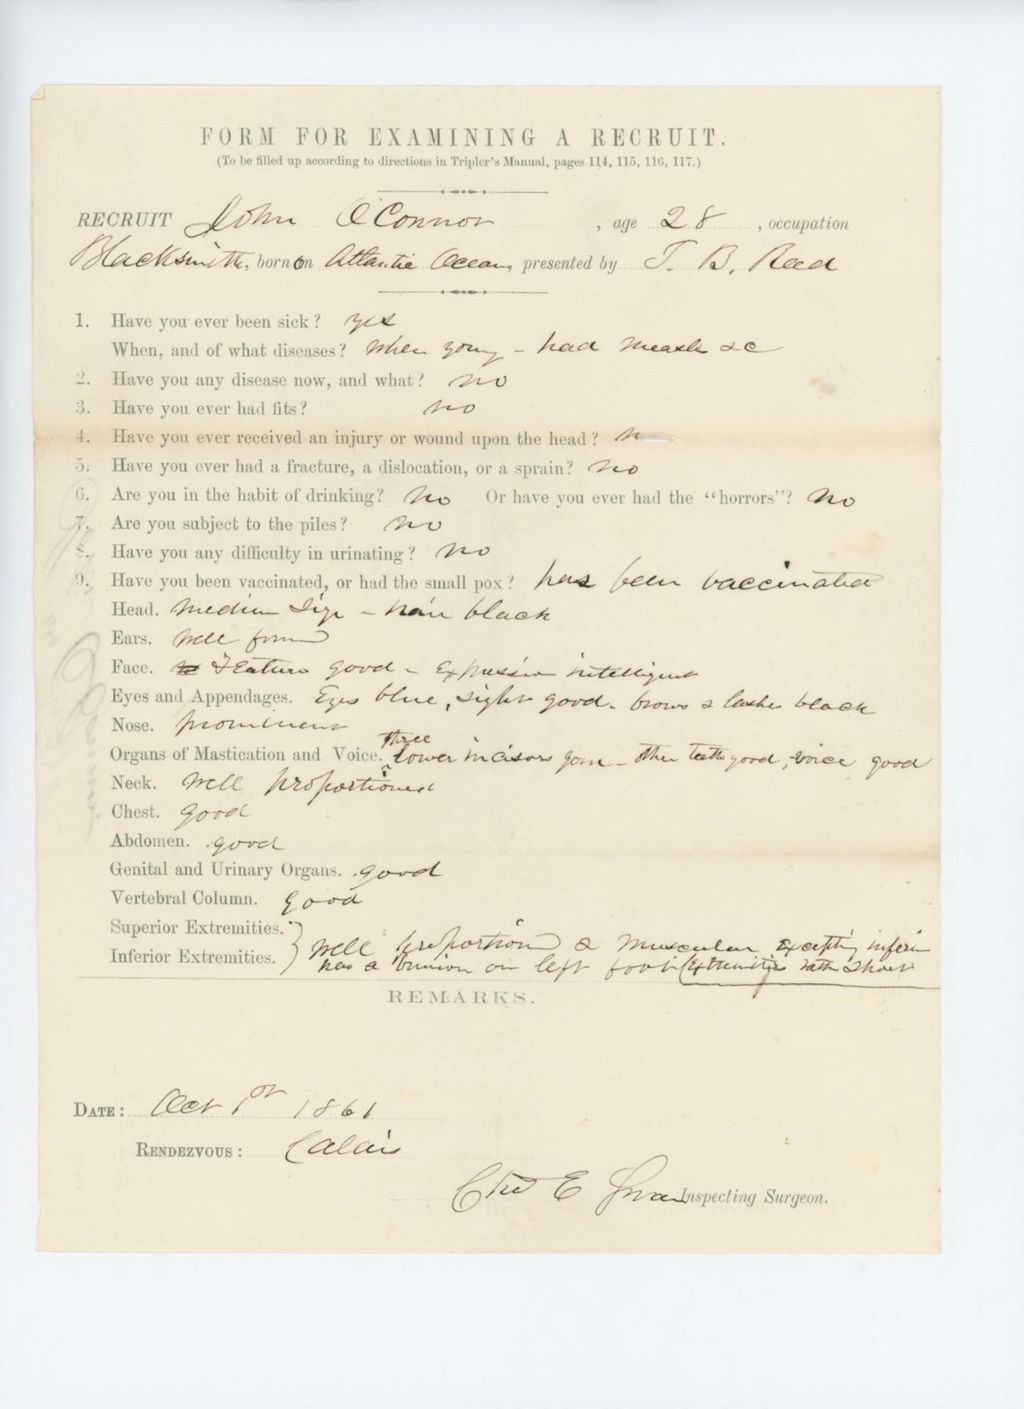 FORM FOR EXAMINING A RECRUIT.
(To be filled up according to directions in Tripler's Manual, pages 114, 115, 116, 117.)
RECRUIT John O'Connor, age 28, occupation
Blacksmith, born on Atlantic Ocean, presented by T. B. Read
1. Have you ever been sick? yes
When, and of what diseases? when young - had measles &c
2. Have you any disease now, and what? no
3. Have you ever had fits? no
4. Have you ever received an injury or wound upon the head?
5. Have you ever had a fracture, a dislocation, or a sprain? no
6. Are you in the habit of drinking? no Or have you ever had the "horrors"? no
7. Are you subject to the piles? no
8. Have you any difficulty in urinating? no
9. Have you been vaccinated, or had the small pox? has been vaccinated
Head. medium size - hair black
Ears. well formed
Face. Features good - expression intelligent
Eyes and Appendages. Eyes blue, sight good. brows & lashes black
Nose. prominent
Organs of Mastication and Voice. three lower incisors gone - other teeth good, voice good
Neck. well proportioned
Chest. good
Abdomen. good
Genital and Urinary Organs. good
Vertebral Column. good
Superior Extremities. well proportioned & muscular excepting inferior
Inferior Extremities. has a bunion on left foot (extremities rath short
REMARKS.
DATE: Oct 1st 1861
RENDEZVOUS: Calais
E Swan Inspecting Surgeon.